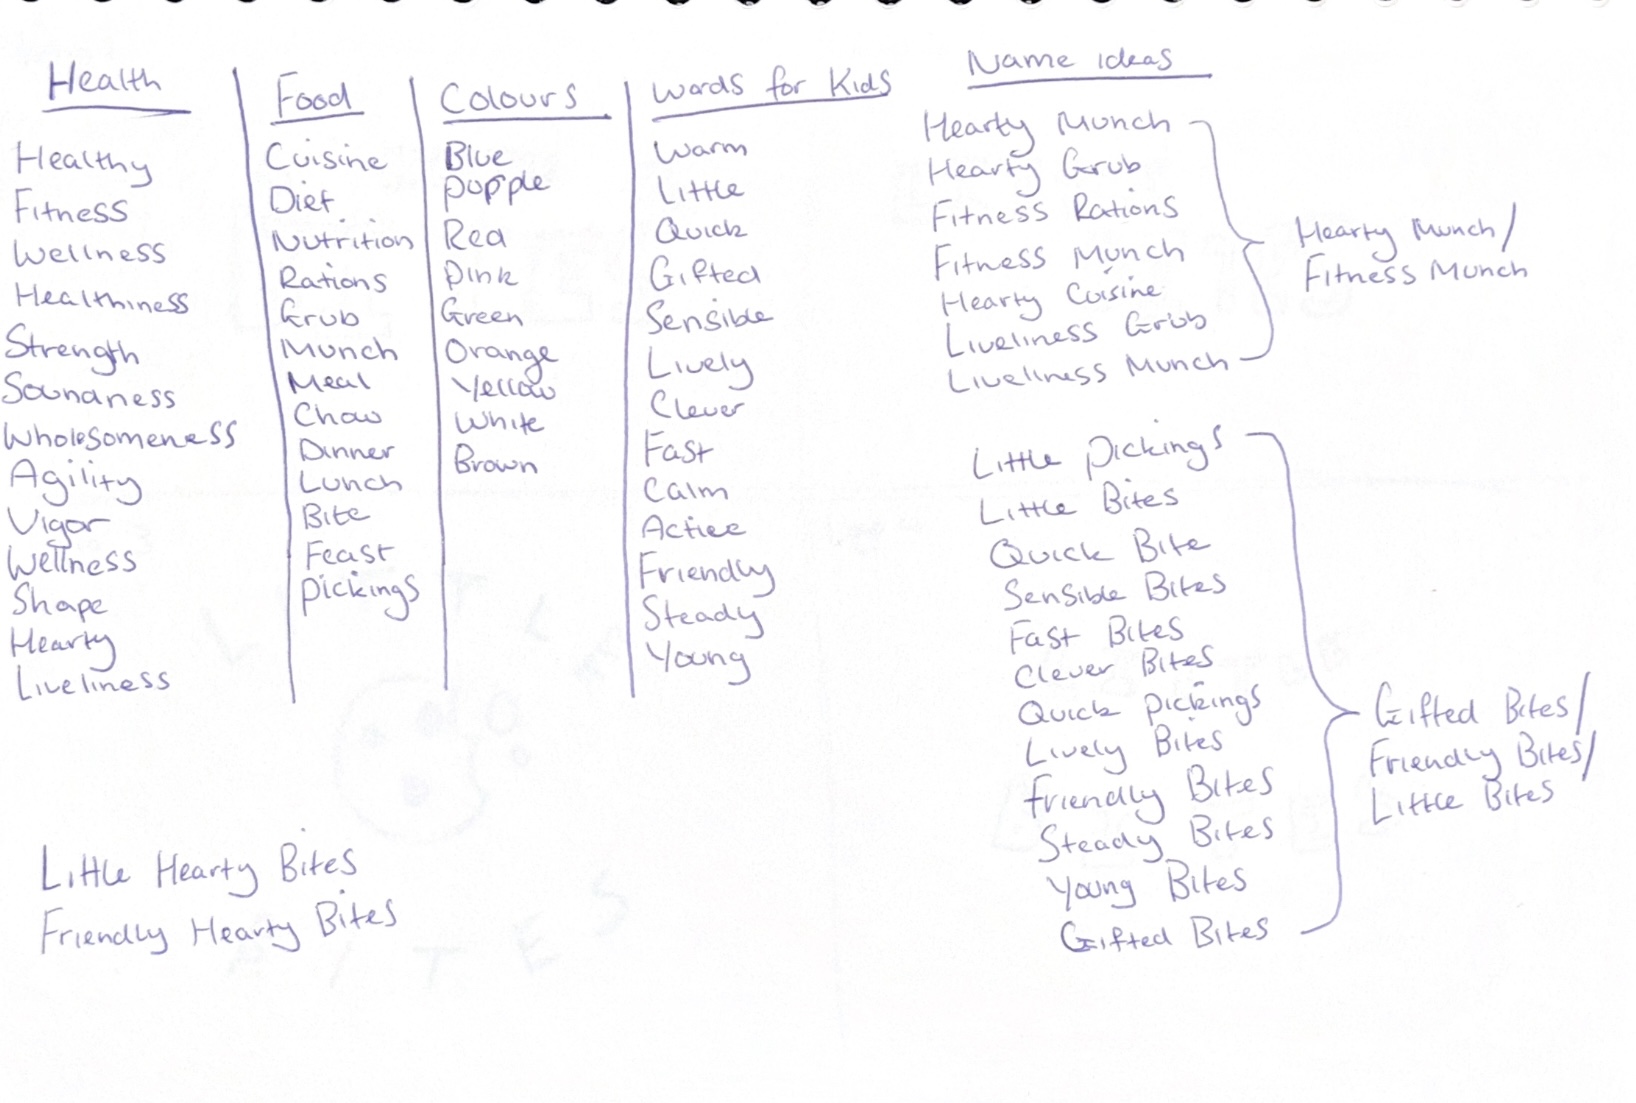 Health
Healthy
Fitness
Wellness
Healthiness
Strength
Soundness
Wholesomeness
Agility
Vigor
Wellness
Shape
Hearty
Liveliness
Food
Cuisine
Diet
Nutrition
Rations
Grub
Munch
Meal
Chow
Dinner
Lunch
Bite
Feast
Pickings
Colours
Blue
Red
Pink
Green
Orange
Yellow
White
Brown
Words for Kids
Warm
Little
Quick
Gifted
Sensible
Lively
Clever
Fast
Calm
Active
Friendly
Steady
Young
Name ideas
Hearty Munch
Hearty Grub
Fitness Rations
Fitness Munch
Hearty Cuisine
Liveliness Grub
Liveliness Munch
Hearty Munch/
Fitness Munch
Little Pickings
Little Bites
Quick Bite
Sensible Bites
Fast Bites
Clever Bites
Quick Pickings
Lively Bites
Friendly Bites
Steady Bites
Young Bites
Gifted Bites
Gifted Bites/
Friendly Bites/
Little Bites
Little Hearty Bites
Friendly Hearty Bites